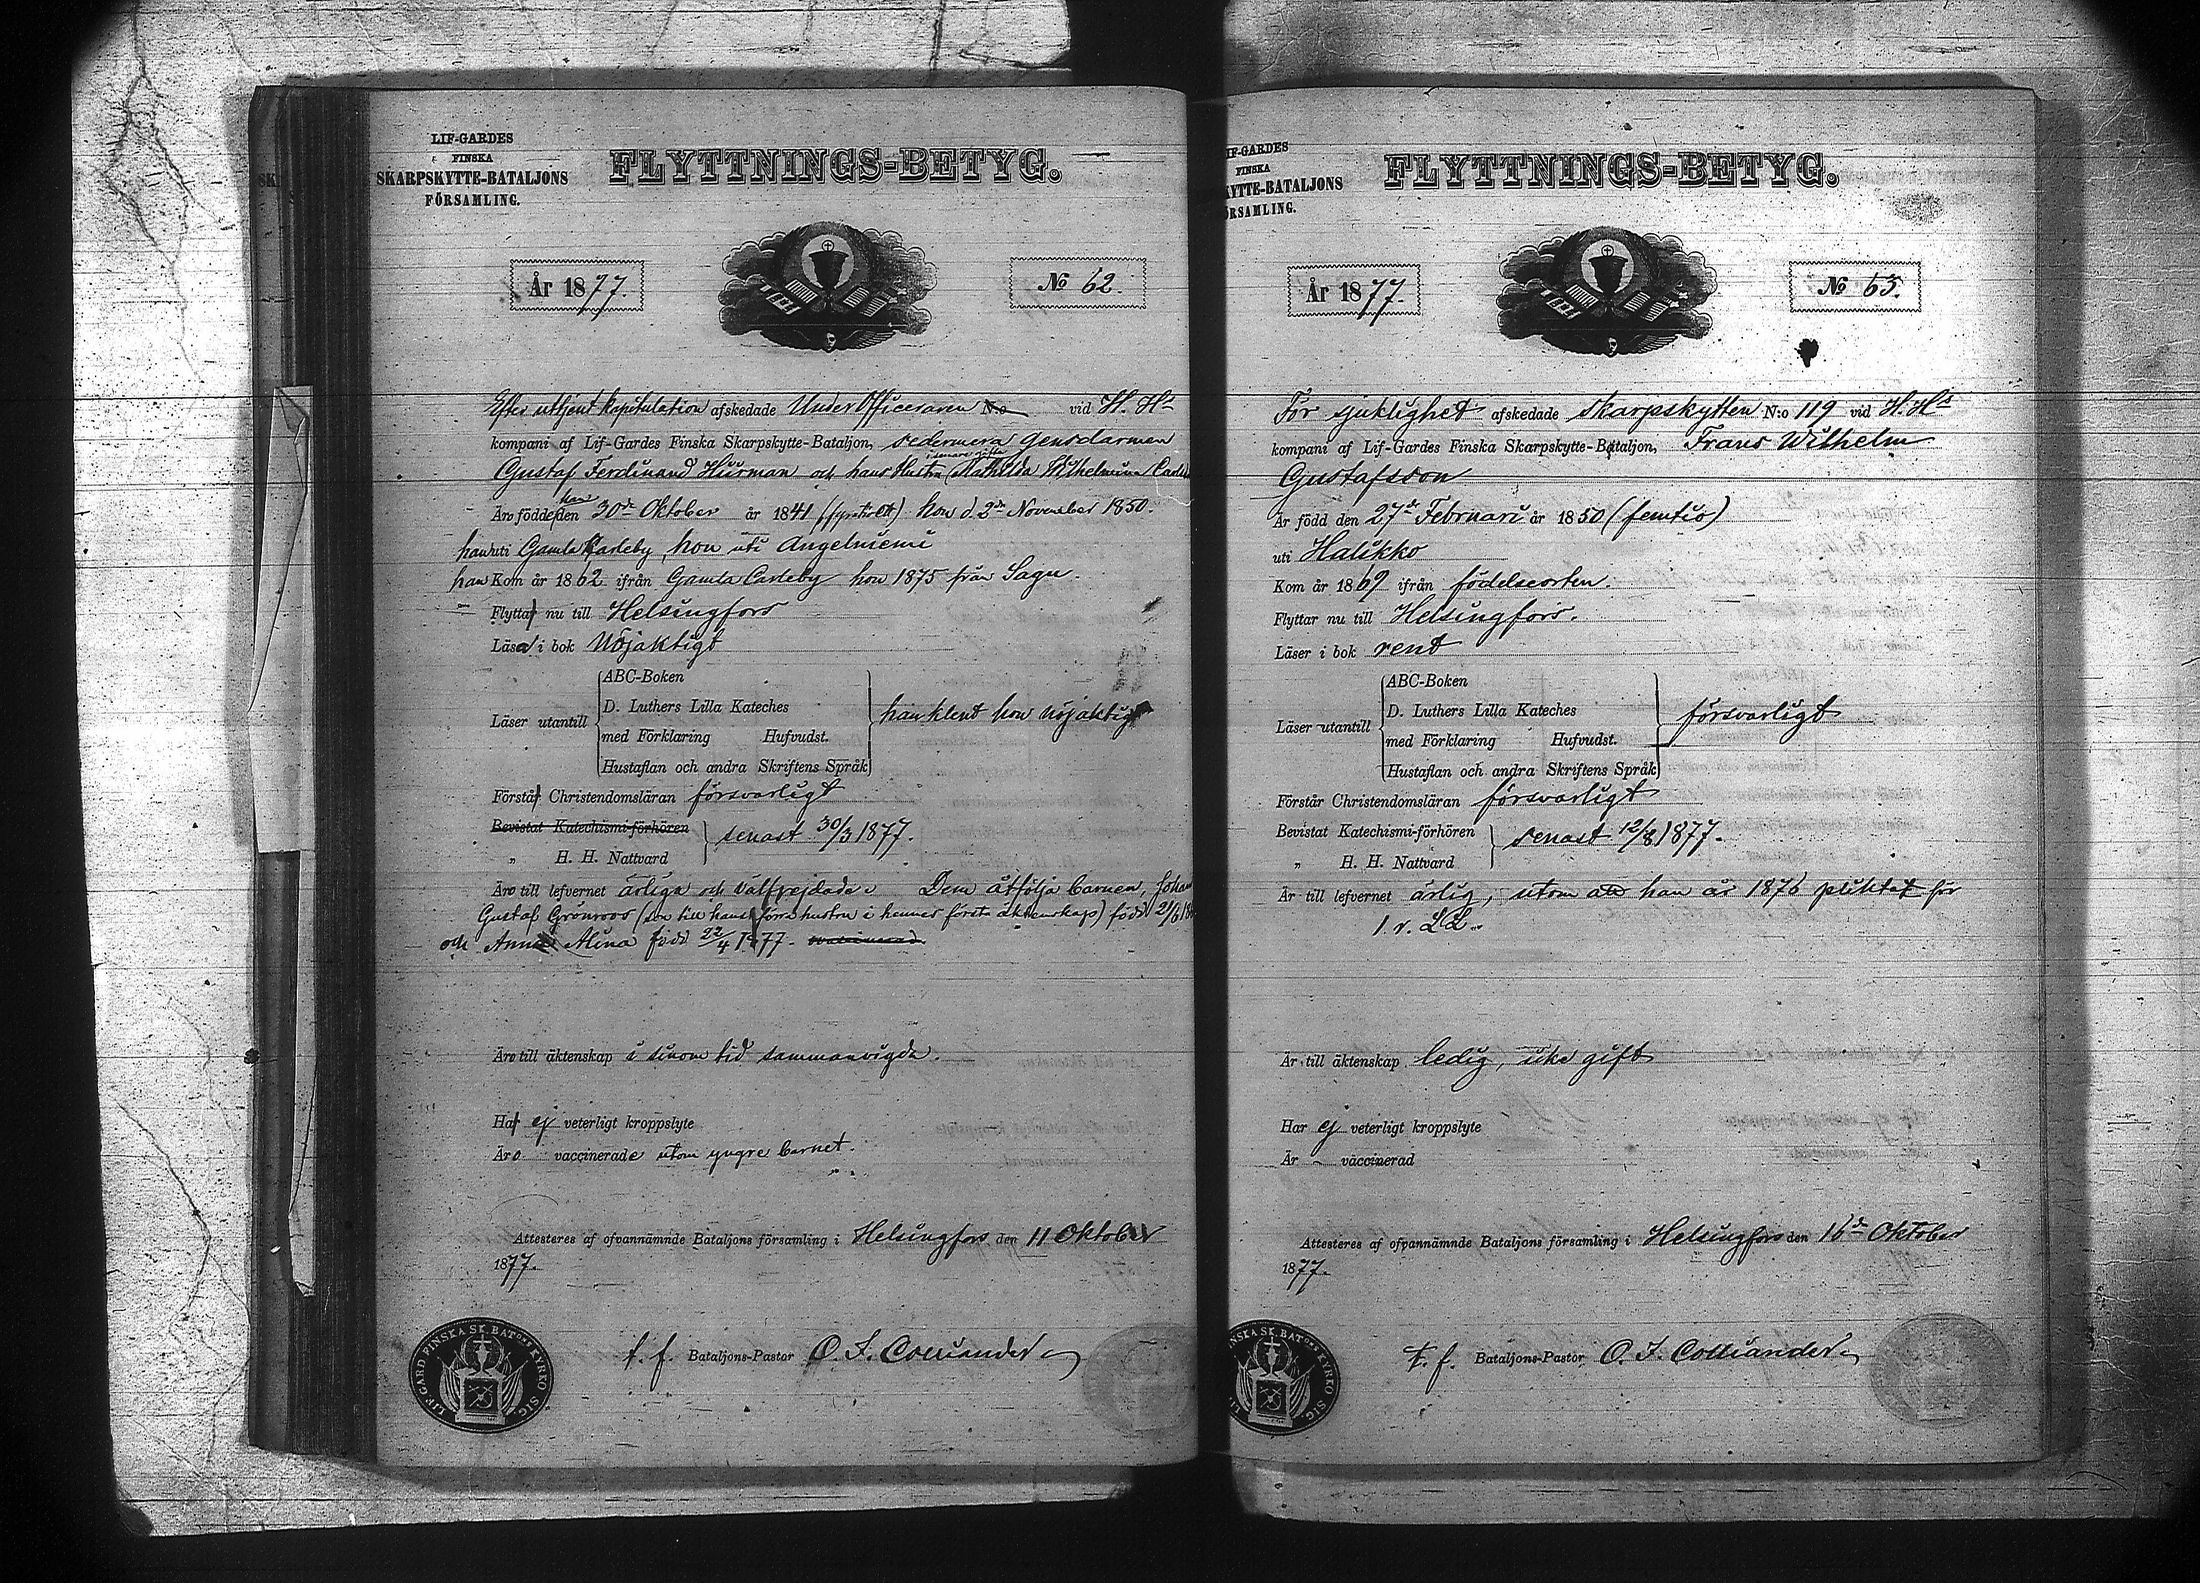 LIF-GARDES
FINSKA
SKARPSKYTTE-BATALJONS
FÖRSAMLING.
FLYTTNINGS-BETYG.
År 1877.
№ 62.
Efter uttjent kapitulation afskedade UnderOfficeraren N:o vid H. H:s
kompani af Lif-Gardes Finska Skarpskytte-Bataljon, sedermera Gensdarmen
Gustaf Ferdinand Hurman och hans Hustru i senare gifte Mathilda Wilhelmina
Äro födde han den 30de Oktober år 1841 (fyratioett) hon d. 2de November 1850.
han uti Gamla Carleby, hon uti Angelniemi
han Kom år 1862 ifrån Gamla Carleby hon 1875 från Sagu.
Flytta nu till Helsingfors
Läsa i bok Nöjaktigt
ABC-Boken
D. Luthers Lilla Kateches
Läser utantill
han klent hon nöjaktigt
med Förklaring Hufvudst.
Hustaflan och andra Skriftens Språk
Förstå Christendomsläran försvarligt
Bevistat Katechismi-förhören
senast 30/3 1877.
„ H. H. Nattvard
Äro till lefvernet ärliga och välfrejdade. Dem åtfölja barnen, Johan
Gustaf Grönroos (son till hans förra hustru i hennes första äktenskap) född 2/6
och Anna Alina född 22/4 1877.
Äro till äktenskap i sinom tid sammanvigda.
Ha ej veterligt kroppslyte
Äro vaccinerade utom yngre barnet.
Attesteres af ofvannämnde Bataljons församling i Helsingfors den 11 Oktober
1877.
t. f. Bataljons-Pastor O. I. Colliander
LIF. GARD FINSKA SK. BAT:ONS KYRKO SIG.
LIF-GARDES
FINSKA
KYTTE-BATALJONS
ÖRSAMLING.
FLYTTNINGS-BETYG.
År 1877.
№ 63.
För sjuklighet afskedade Skarpskytten N:o 119 vid H. H:s
kompani af Lif-Gardes Finska Skarpskytte-Bataljon, Frans Wilhelm
Gustafsson
Är född den 27de Februari år 1850 (femtio)
uti Halikko
Kom år 1869 ifrån födelseorten.
Flyttar nu till Helsingfors.
Läser i bok rent
ABC-Boken
D. Luthers Lilla Kateches
Läser utantill
försvarligt
med Förklaring Hufvudst.
Hustaflan och andra Skriftens Språk
Förstår Christendomsläran försvarligt
Bevistat Katechismi-förhören
senast 12/8 1877.
„ H. H. Nattvard
Är till lefvernet ärlig, utom att han år 1876 pliktat för
1. r. LL.
Är till äktenskap ledig, icke gift
Har ej veterligt kroppslyte
Är vaccinerad
Attesteres af ofvannämnde Bataljons församling i Helsingfors den 16de Oktober
1877.
t. f. Bataljons-Pastor O. I. Colliander
FINSKA SK. BAT:ONS KYRKO SIG.